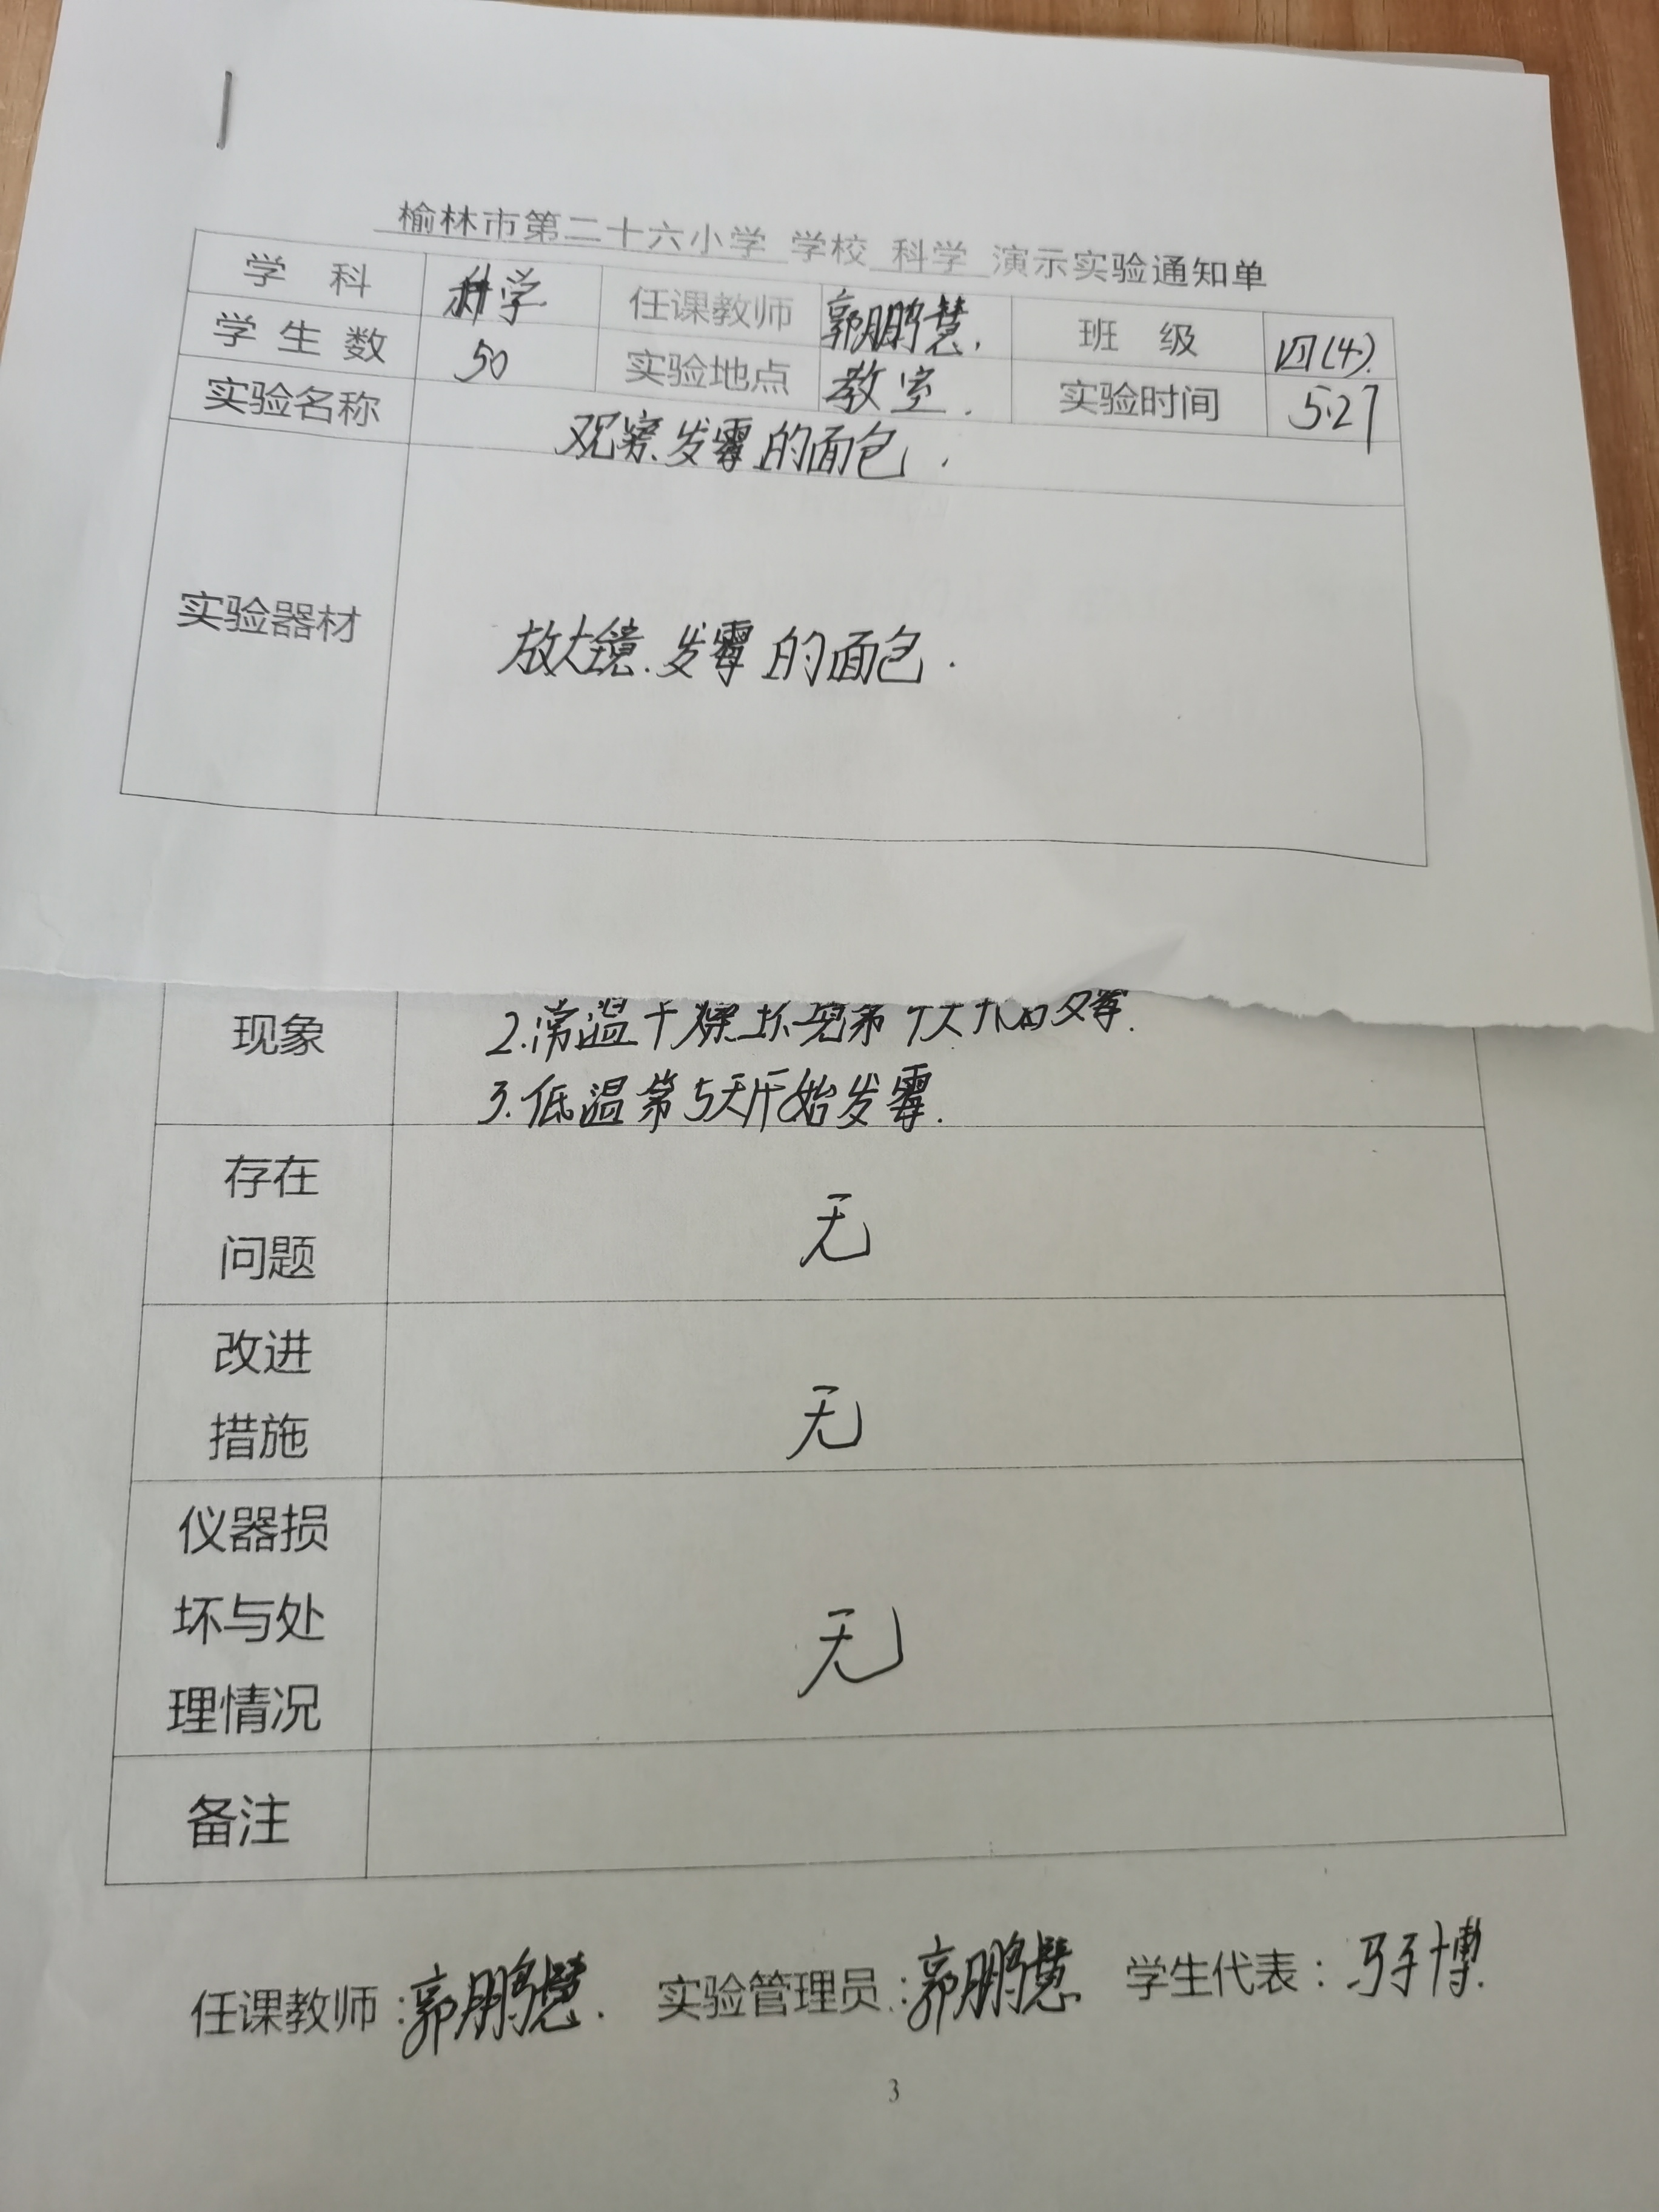 榆林市第二十六小学 学校 科学 演示实验通知单
学 科 科学 任课教师 郭鹏慧. 班 级 四(4).
学生数 50 实验地点 教室. 实验时间 5.27
实验名称 观察发霉的面包.
实验器材 放大镜.发霉的面包.
现象 2.常温干燥环境第
3.低温第5天开始发霉.
存在
问题
无
改进
措施
无
仪器损
坏与处
理情况
无
备注
任课教师:郭鹏慧. 实验管理员:郭鹏慧 学生代表:马子博.
3